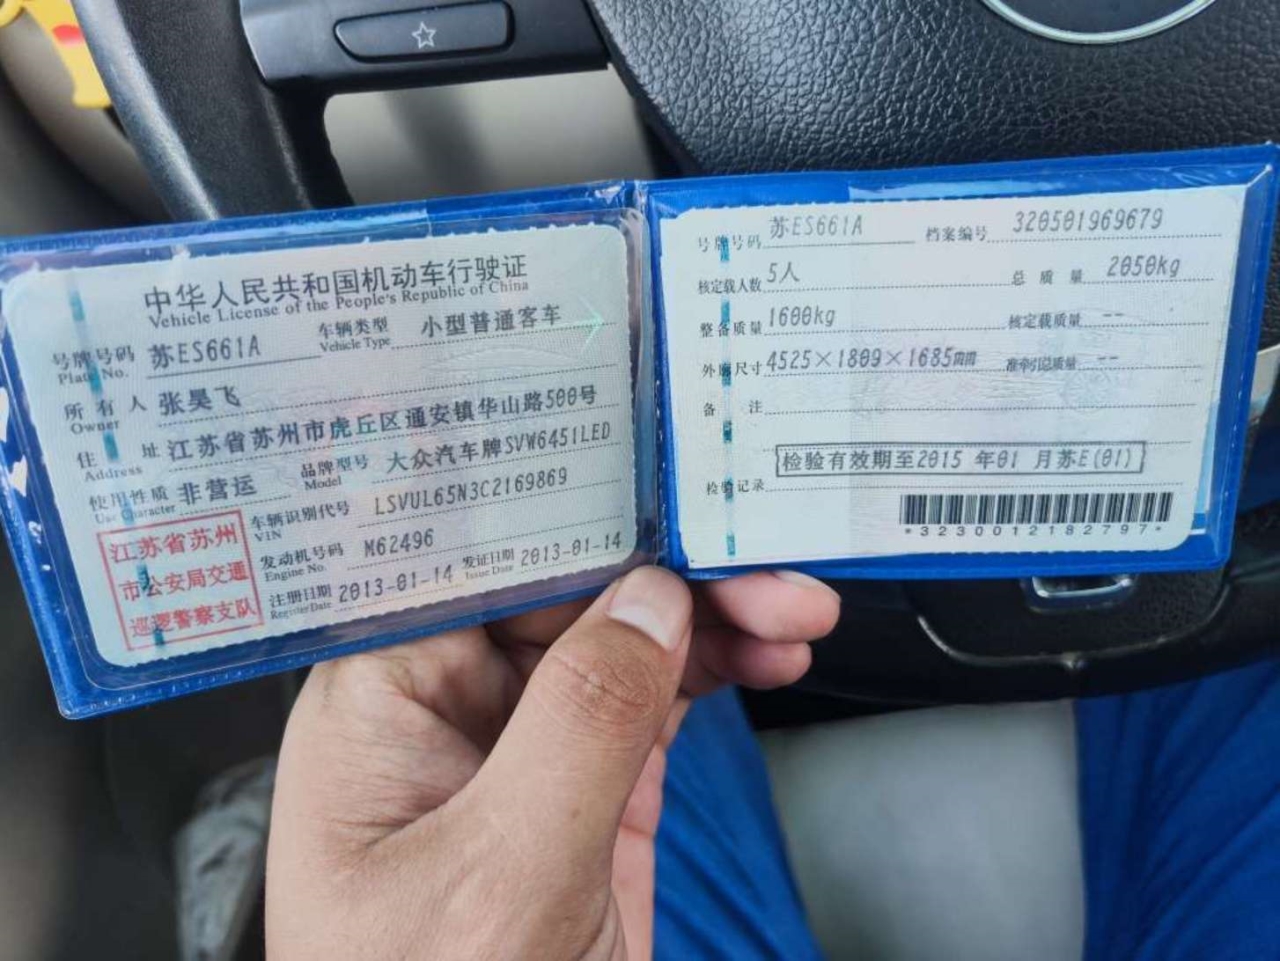 中华人民共和国机动车行驶证
Vehicle License of the People's Republic of China
号牌号码 苏ES661A 车辆类型 小型普通客车
Plate No. Vehicle Type
所有人 张昊飞
Owner
住址 江苏省苏州市虎丘区通安镇华山路500号
Address
使用性质 非营运 品牌型号 大众汽车牌SVW6451LED
Use Character Model
江苏省苏州
市公安局交通
巡逻警察支队
车辆识别代号 LSVUL65N3C2169869
VIN
发动机号码 M62496
Engine No.
注册日期 2013-01-14 发证日期 2013-01-14
Register Date Issue Date
号牌号码 苏ES661A 档案编号 320501969679
核定载人数 5人 总质量 2050kg
整备质量 1600kg 核定载质量 --
外廓尺寸 4525×1809×1685mm 准牵引总质量 --
备注
检验有效期至2015 年01 月苏E(01)
检验记录
*3230012182797*